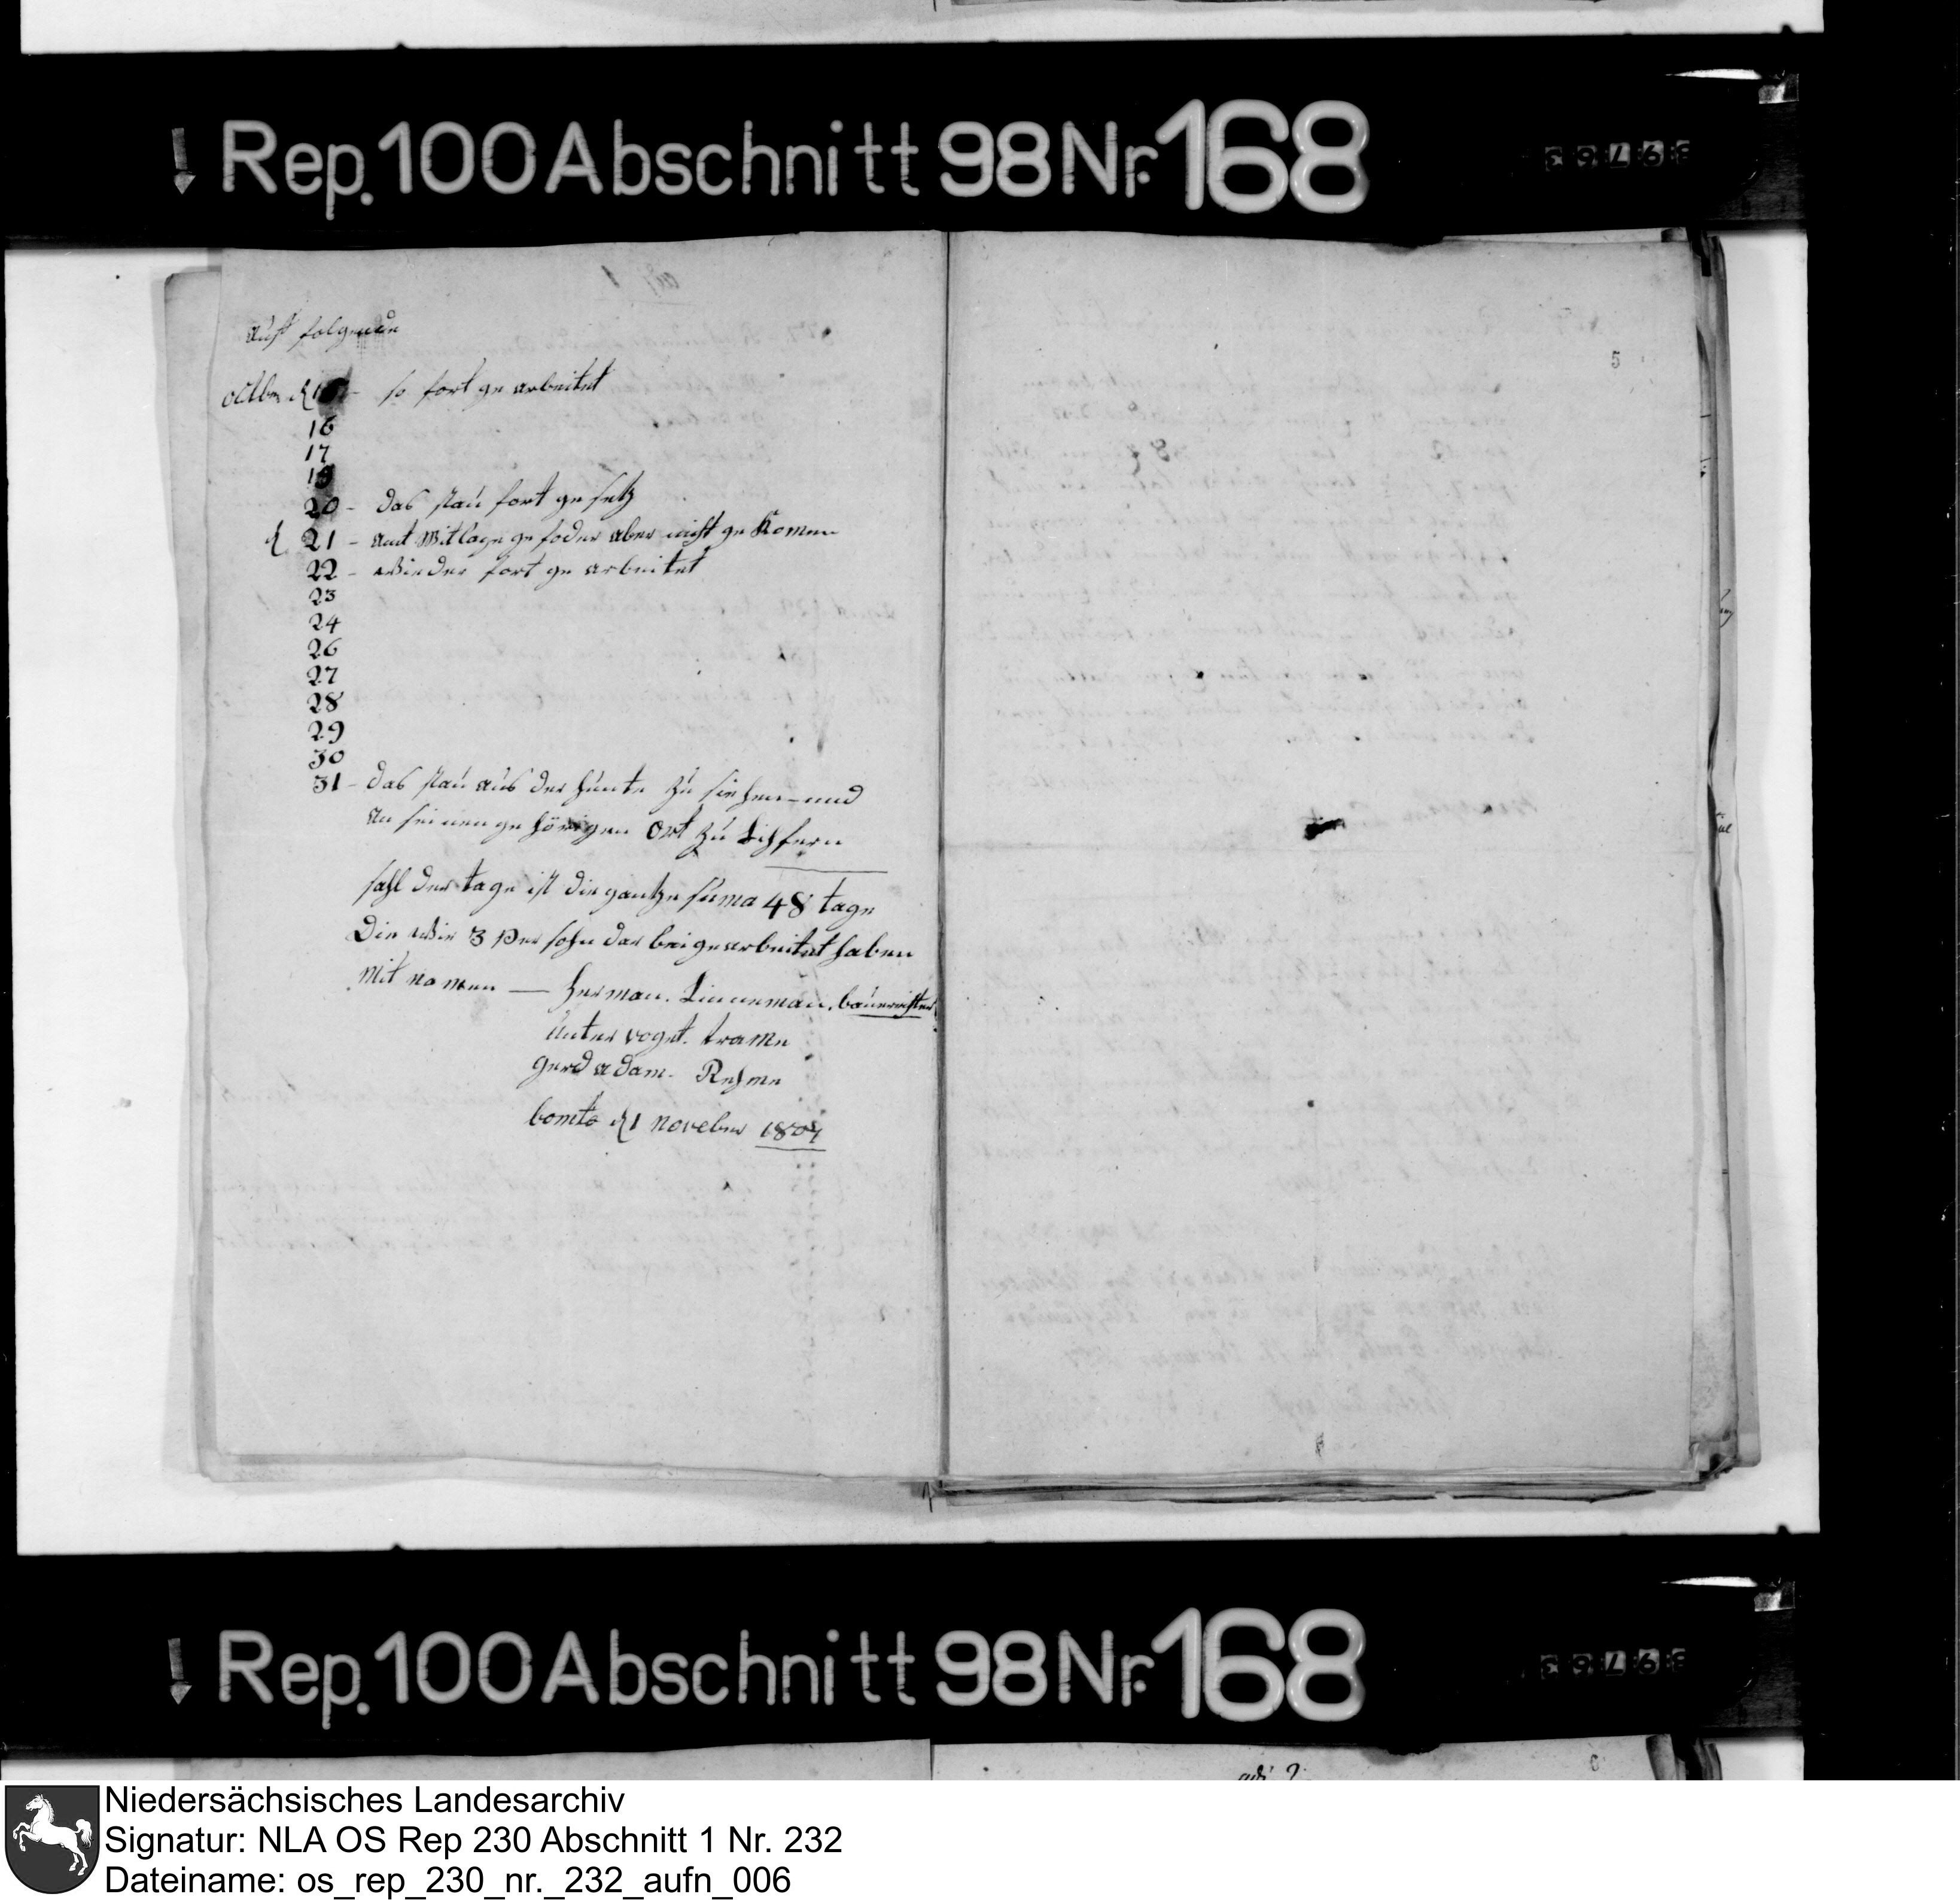 Rep. 100 Abschnitt 98 Nr. 168
5
Aust folgende
octber d 15 - so fort ge arbeitet
16
17
19
20 - das stau fort ge setz
d 21 - amt Witlage ge foder aber nicht ge Komen
22 - wieder fort ge arbeitet
23
24
26
27
28
29
30
31 - das stau aus der hunte zu siehen und
an seinen ge hörigen Ort zu Lihfern
sahl der tage ist die gantze suma 48 tage
Die wir 3 Persohn dar bei gearbeitet haben
Mit namen — Herman. Linneman.
Unter voget. trame
Gerd adam. Rehme
bomte d 1 noveber 1804
Rep. 100 Abschnitt 98 Nr. 168
Niedersächsisches Landesarchiv
Signatur: NLA OS Rep 230 Abschnitt 1 Nr. 232
Dateiname: os_rep_230_nr._232_aufn_006